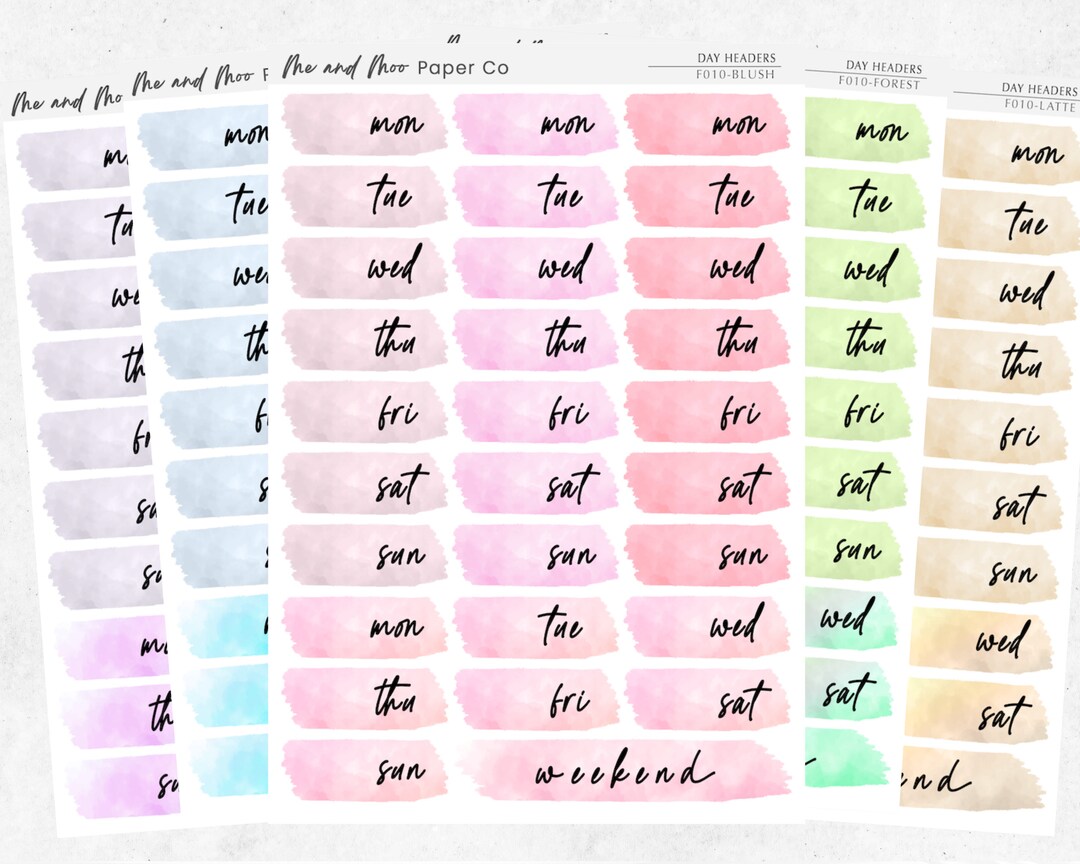 Me and Mo
Me and Moo
mon
Me and Moo Paper Co
DAY HEADERS
F010-BLUSH
mon mon mon
tue tue tue
wed wed wed
thu thu thu
fri fri fri
sat sat sat
sun sun sun
mon tue wed
thu fri sat
sun weekend
DAY HEADERS
F010-FOREST
mon
tue
wed
thu
fri
sat
sun
wed
sat
DAY HEADERS
F010-LATTE
mon
tue
wed
thu
fri
sat
sun
wed
sat
end